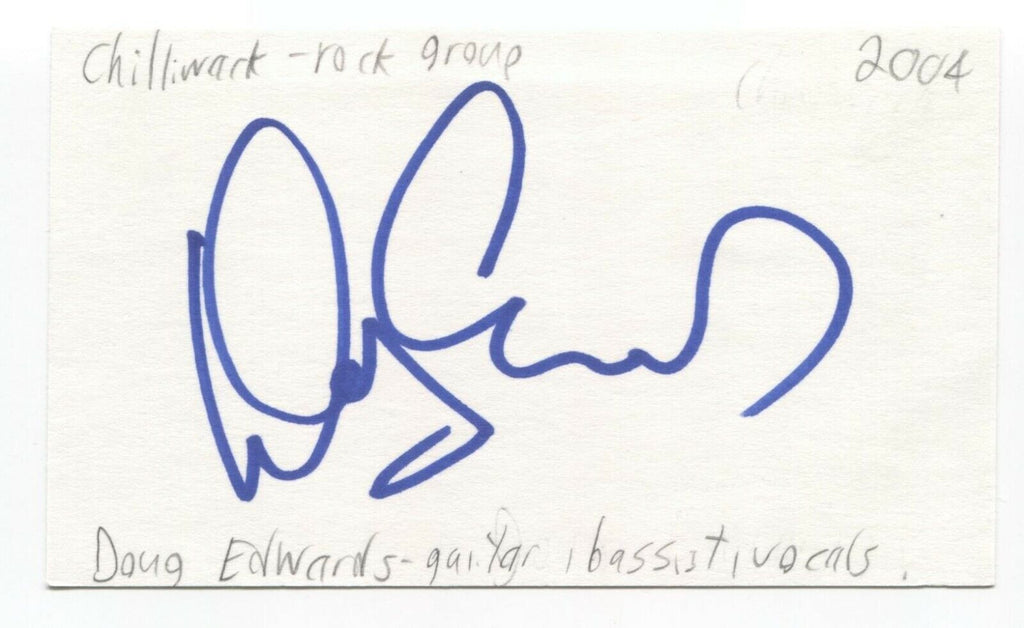 Chilliwack - rock group
2004
Doug Edwards - guitar, bassist, vocals.